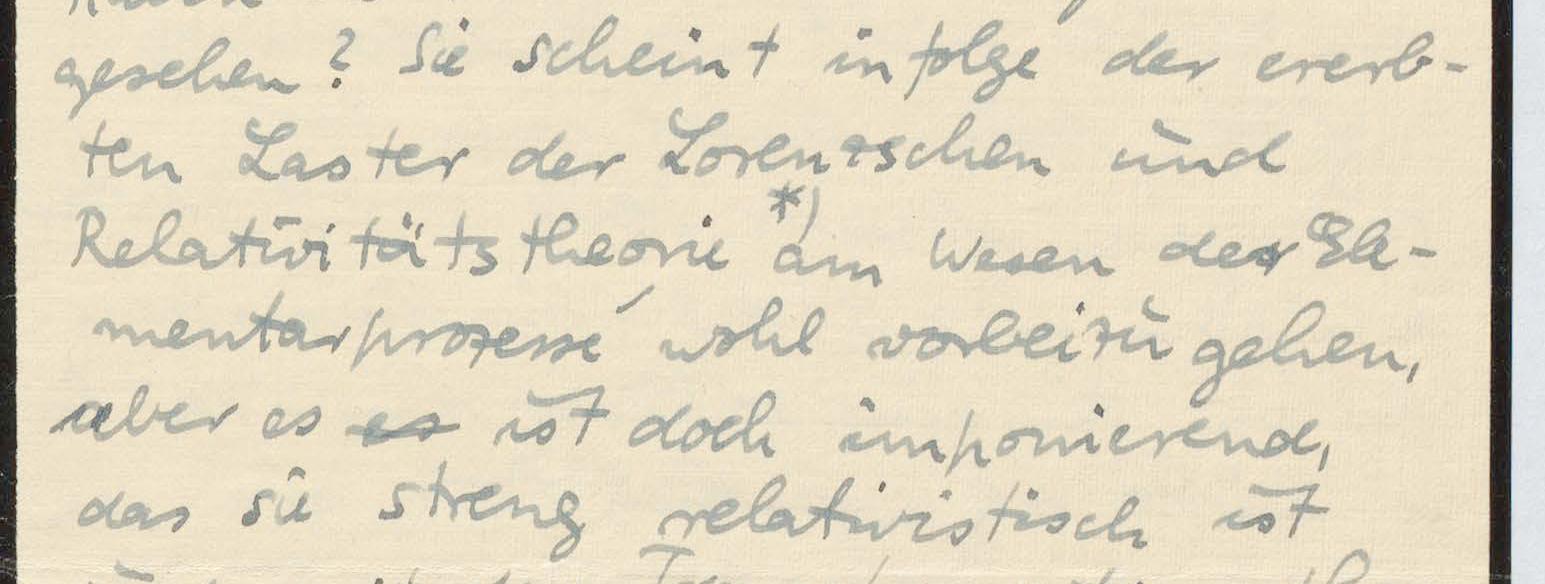 gesehen? Sie scheint infolge der ererb-
ten Laster der Lorentzschen und
Relativitätstheorie *) am Wesen der Ele-
mentarprozesse wohl vorbeizugehen,
aber es es ist doch imponierend,
das sie streng relativistisch ist